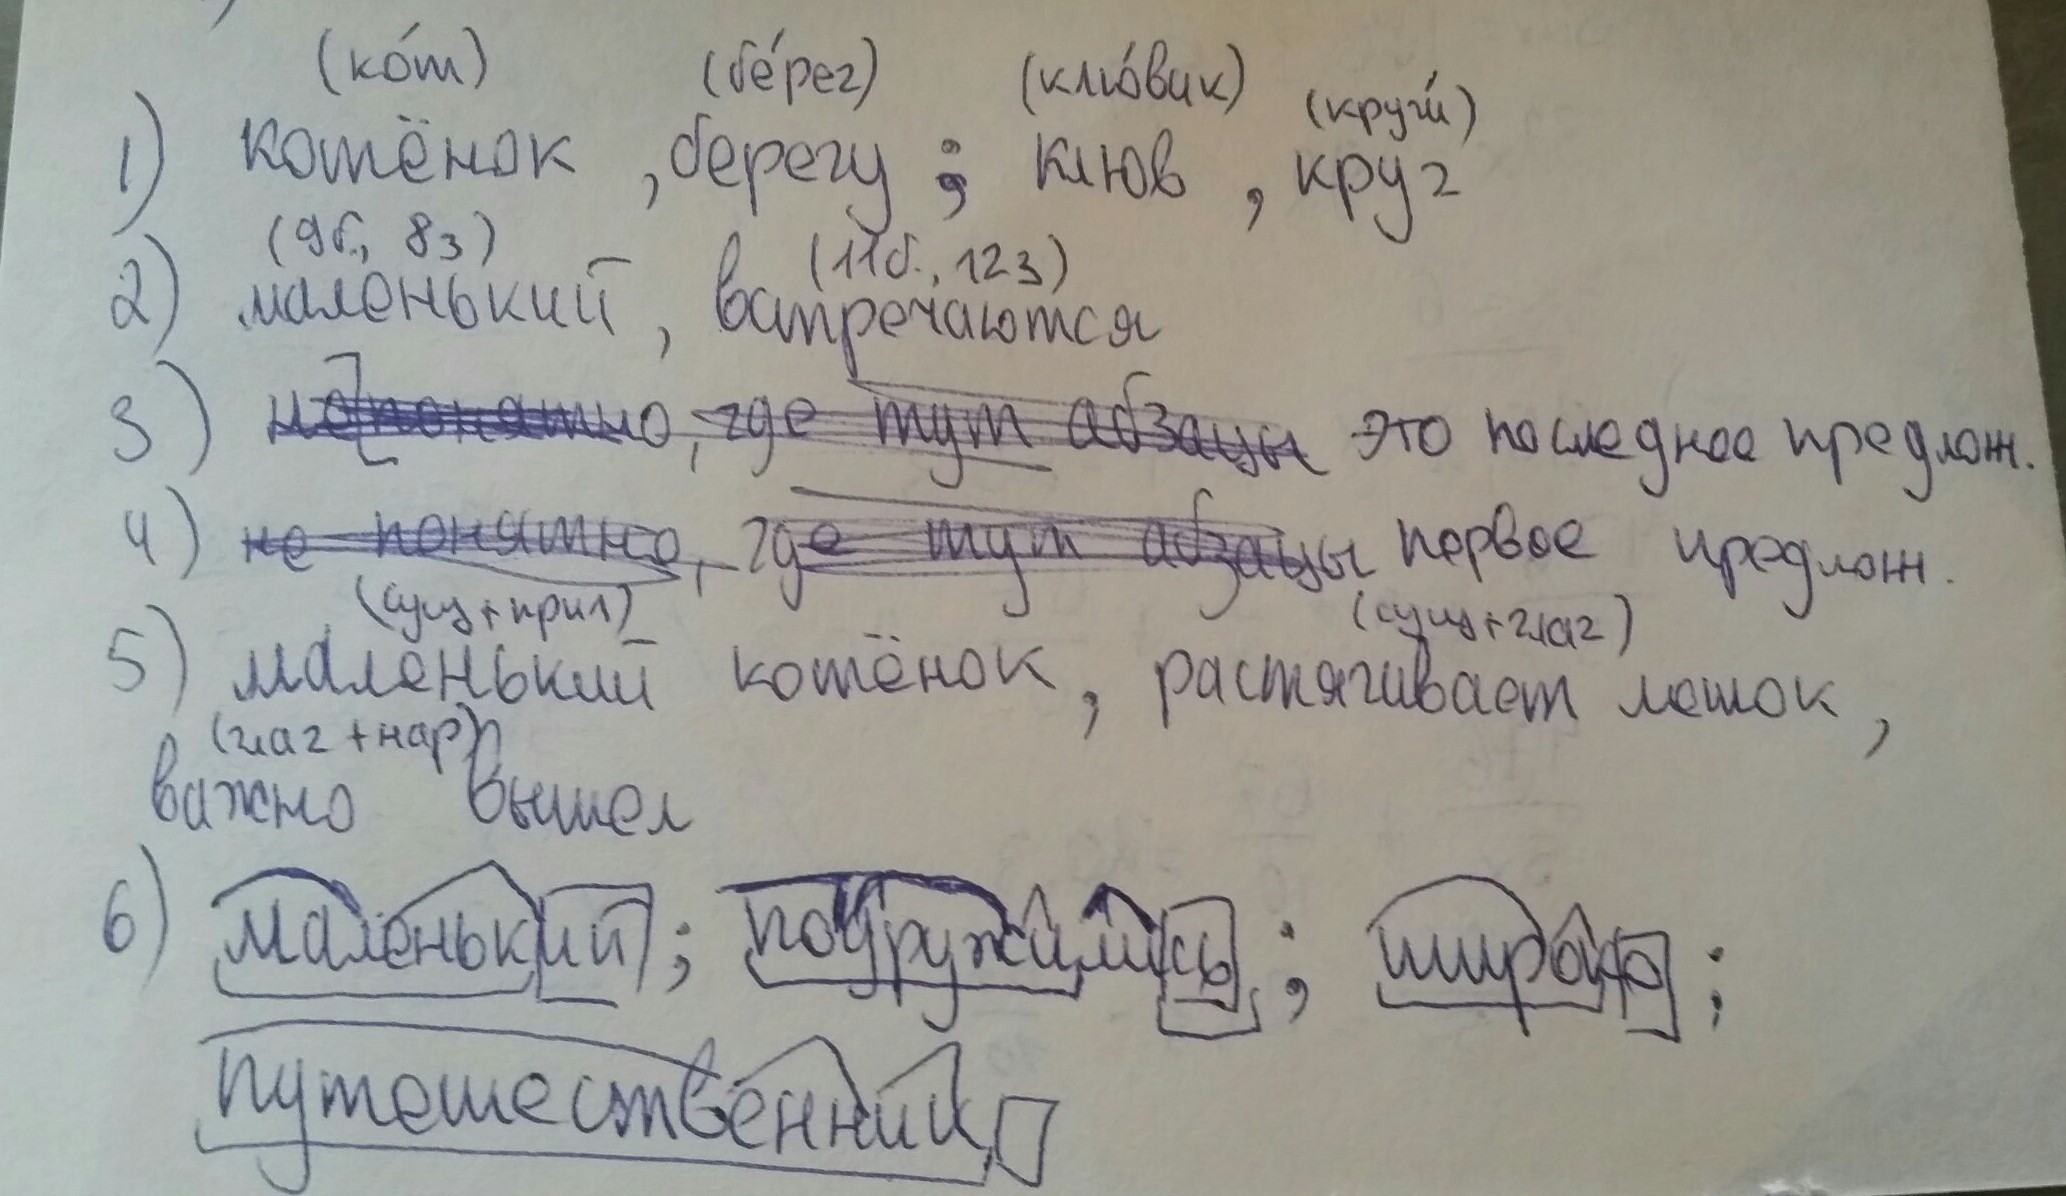 (ко́т) (бе́рег) (клю́вик) (круги́)
1) котёнок, берегу; клюв, круг
(9б., 8з) (11б., 12з)
2) маленький, встречаются
3) не понятно, где тут абзацы это последнее предлож.
4) не понятно, где тут абзацы первое предлож.
(сущ+прил) (сущ+глаг)
5) маленький котёнок, растягивает мешок,
(глаг+нар)
важно вышел
6) маленький; подружились; широко;
путешественник